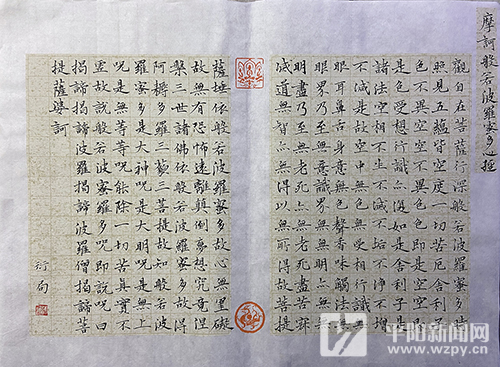 摩訶般若波羅蜜多心經
觀自在菩薩行深般若波羅蜜多時
照見五蘊皆空度一切苦厄舍利子
色不異空空不異色色即是空空即
是色受想行識亦復如是舍利子是
諸法空相不生不滅不垢不淨不增
不減是故空中無色無受想行識無
眼耳鼻舌身意無色聲香味觸法無
眼界乃至無意識界無無明亦無無
明盡乃至無老死亦無老死盡無苦集
滅道無智亦無得以無所得故菩提
薩埵依般若波羅蜜多故心無罣礙
故無有恐怖遠離顛倒夢想究竟涅
槃三世諸佛依般若波羅蜜多故得
阿耨多羅三藐三菩提故知般若波
羅蜜多是大神咒是大明咒是無上
咒是無等等咒能除一切苦真實不
虛故說般若波羅蜜多咒即說咒曰
揭諦揭諦波羅揭諦波羅僧揭諦菩
提薩婆訶
平阳新闻网
www.wzpy.cn